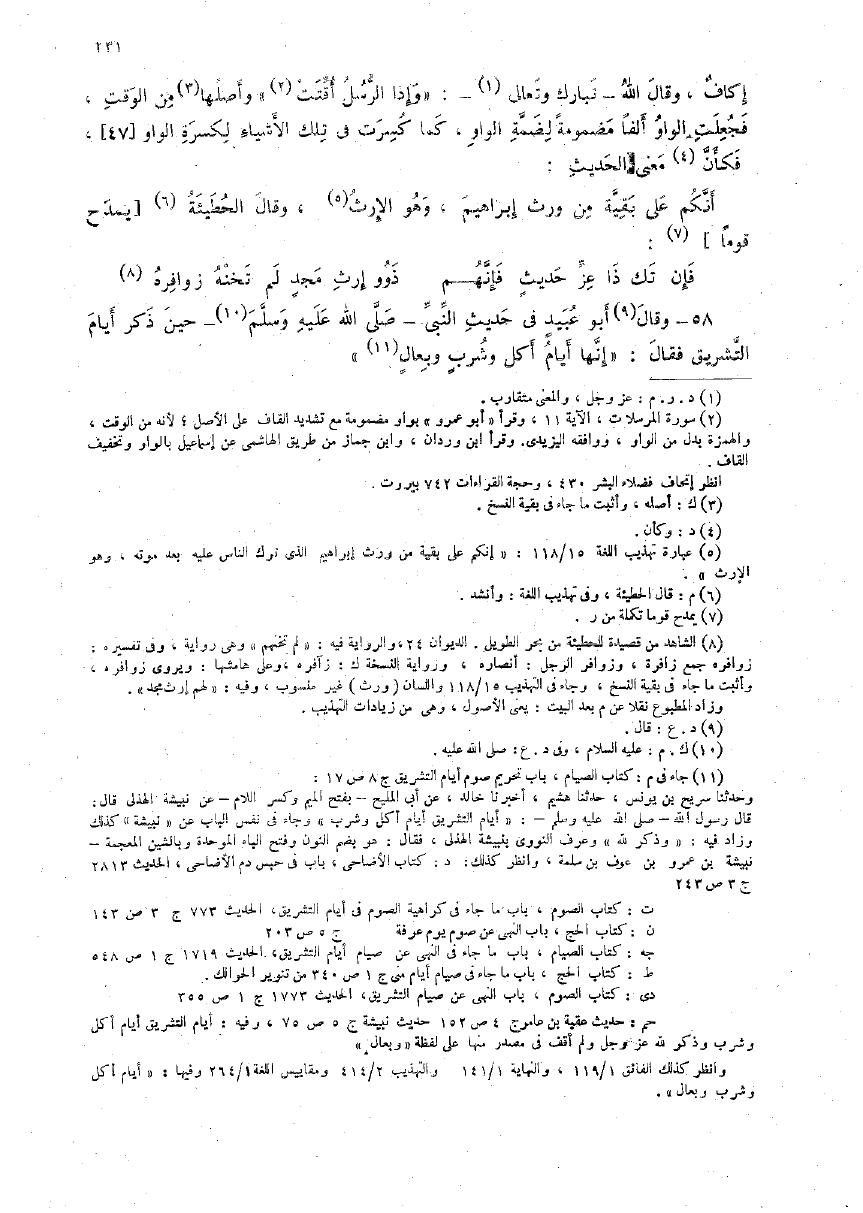 ٢٣١
إِكافٌ ، وقالَ اللهُ – تَبارك وتَعالى (١) – : «وَإِذا الرُّسُلُ أُقِّتَتْ (٢)» وأَصلُها(٣) مِن الوَقتِ ،
فَجُعِلَتِ الواوُ أَلفاً مَضمومةً لِضَمَّةِ الواوِ ، كَما كُسِرَت فى تِلكَ الأَشياءِ لِكسرَةِ الواو [٤٧] ،
فَكأَنَّ (٤) مَعنى الحَديثِ :
أَنَّكُم عَلى بَقِيَّة مِن ورث إِبراهيمَ ، وَهُو الإِرثُ(٥) ، وقالَ الحُطَيئَةُ (٦) [يمدَح
قوماً ] (٧) :
فَإِن تَك ذَا عِزٍّ حَديثٍ فَإِنَّهُـــم ذَوُو إِرثِ مَجدٍ لَم تَخنْهُ زوافِرهُ (٨)
٥٨ – وقالَ(٩) أَبو عُبَيدٍ فى حَديثِ النَّبِىِّ – صَلَّى الله عَلَيهِ وَسَلَّمَ(١٠) – حينَ ذَكر أَيامَ
التَّشريق فقالَ : «إِنَّها أَيامُ أَكل وشُربٍ وبِعالٍ(١١) »
(١) د . و . م : عز وجل ، والمعنى متقارب .
(٢) سورة المرسلات ، الآية ١١ ، وقرأ « أبو عمرو » بواو مضمومة مع تشديد القاف على الأصل ؛ لأنه من الوقت ،
والهمزة بدل من الواو ، ووافقه اليزيدى. وقرأ ابن وردان ، وابن جماز من طريق الهاشمى عن إسماعيل بالواو وتخفيف
القاف .
انظر إتحاف فضلاء البشر ٤٣٠ ، وحجة القراءات ٧٤٢ بيروت .
(٣) ك : أصله ، وأثبت ما جاء فى بقية النسخ .
(٤) د : وكأن .
(٥) عبارة تهذيب اللغة ١١٨/١٥ : « إنكم على بقية من ورث إبراهيم الذى ترك الناس عليه بعد موته ، وهو
الإرث » .
(٦) م : قال الحطيئة ، وفى تهذيب اللغة : وأنشد .
(٧) يمدح قوما تكلة من ر .
(٨) الشاهد من قصيدة للحطيئة من بحر الطويل . الديوان ٢٤ ، والرواية فيه : « لم تخنهم » وهى رواية ، وفى تفسيره :
زوافره جمع زافرة ، وزوافر الرجل : أنصاره ، ورواية النسخة ك : زآفره ، وعلى هامشها : ويروى زوافره ،
وأثبت ما جاء فى بقية النسخ ، وجاء فى التهذيب ١١٨/١٥ واللسان ( ورث ) غير منسوب ، وفيه : « لهم إرث مجد » .
وزاد المطبوع نقلا عن م بعد البيت : يعنى الأصول ، وهى من زيادات التهذيب .
(٩) د . ع : قال .
(١٠) ك . م : عليه السلام ، وفى د . ع : صلى الله عليه .
(١١) جاء فى م : كتاب الصيام ، باب تحريم صوم أيام التشريق ج ٨ ص ١٧ :
وحدثنا سريج بن يونس ، حدثنا هشيم ، أخبرنا خالد ، عن أبى المليح – بفتح الميم وكسر اللام – عن نبيشة الهذلى قال :
قال رسول الله – صلى الله عليه وسلم – : « أيام التشريق أيام أكل وشرب » وجاء فى نفس الباب عن « نبيشة » كذلك
وزاد فيه : « وذكر لله » وعرف النووى بنبيشة الهذلى ، فقال : هو بضم النون وفتح الباء الموحدة وبالشين المعجمة –
نبيشة بن عمرو بن عوف بن سلمة ، وانظر كذلك : د : كتاب الأضاحى ، باب فى حبس دم الأضاحى ، الحديث ٢٨١٣
ج ٣ ص ٢٤٣
ت : كتاب الصوم ، باب ما جاء فى كراهية الصوم فى أيام التشريق، الحديث ٧٧٣ ج ٣ ص ١٤٣
ن : كتاب الحج ، باب النهى عن صوم يوم عرفة ج ٥ ص ٢٠٣
جه : كتاب الصيام ، باب ما جاء فى النهى عن صيام أيام التشريق، الحديث ١٧١٩ ج ١ ص ٥٤٨
ط : كتاب الحج ، باب ما جاء فى صيام أيام منى ج ١ ص ٣٤٠ من تنوير الحوالك .
دى : كتاب الصوم ، باب النهى عن صيام التشريق، الحديث ١٧٧٣ ج ١ ص ٣٥٥
حم : حديث عقبة بن عامر ج ٤ ص ١٥٢ حديث نبيشة ج ٥ ص ٧٥ ، وفيه : أيام التشريق أيام أكل
وشرب وذكر لله عز وجل ولم أقف فى مصدر منها على لفظة «وبعال »
وانظر كذلك الفائق ١١٩/١ ، والنهاية ١٤١/١ والتهذيب ٤١٤/٢ ومقاييس اللغة ٢٦٤/١ وفيها : « أيام أكل
وشرب وبعال » .